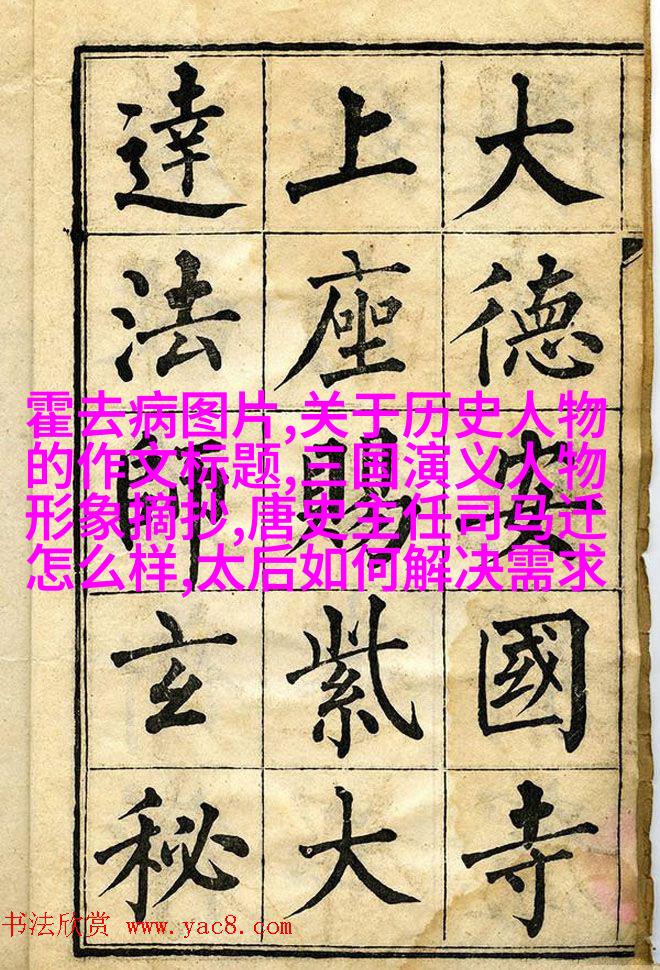 大德安國寺
上座賜紫大
達法師玄秘
霍去病图片,关于历史人物
的作文标题,三国演义人物
形象摘抄,唐史主任司马迁
怎么样,太后如何解决需求
书法欣赏 www.yac8.com